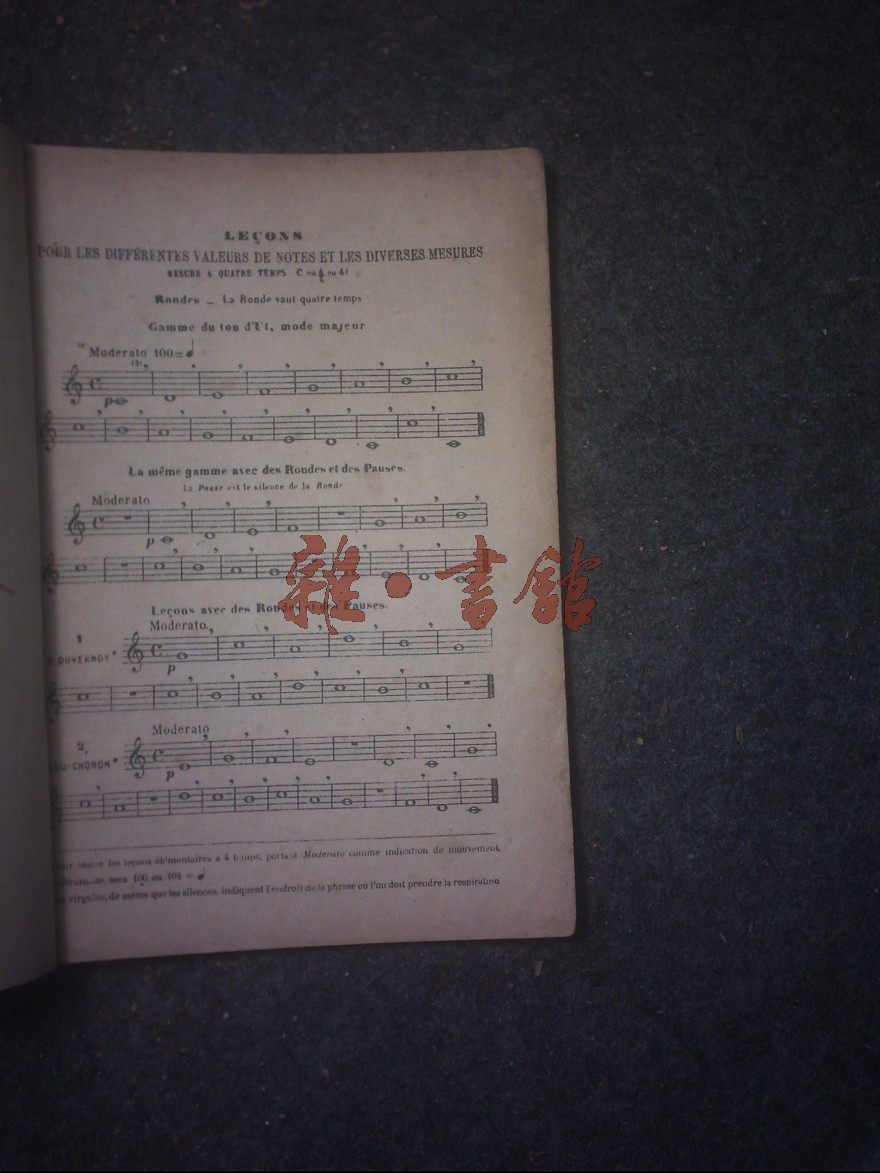 LEÇONS
POUR LES DIFFÉRENTES VALEURS DE NOTES ET LES DIVERSES MESURES
MESURE A QUATRE TEMPS C ou 4 ou 4/4
Rondes _ La Ronde vaut quatre temps
Gamme du ton d'Ut, mode majeur
Moderato 100=
p
La même gamme avec des Rondes et des Pauses.
La Pause est le silence de la Ronde
Moderato
p
雜·書館
Leçons avec des Rondes et des Pauses.
1
Moderato.
DUVERNOY*
p
2.
Moderato
CHORON*
p
les leçons élémentaires a 4 temps, portant Moderato comme indication de mouvement,
sera 100 ou 104 =
virgules, de même que les silences, indiquent l'endroit de la phrase où l'on doit prendre la respiration